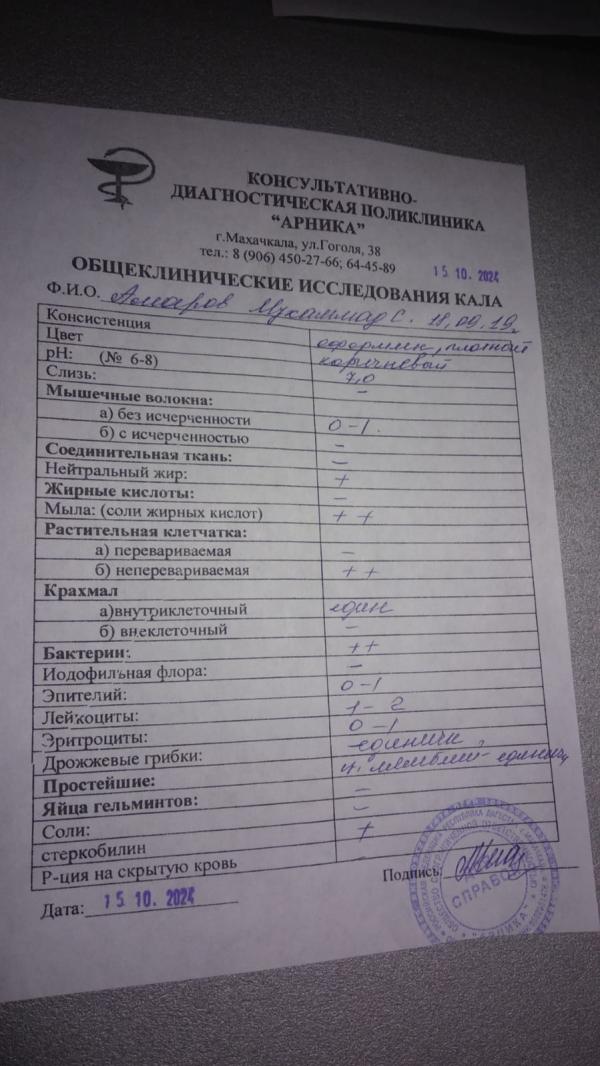 КОНСУЛЬТАТИВНО-
ДИАГНОСТИЧЕСКАЯ ПОЛИКЛИНИКА
“АРНИКА”
г.Махачкала, ул.Гоголя, 38
тел.: 8 (906) 450-27-66; 64-45-89
15 10. 2024
ОБЩЕКЛИНИЧЕСКИЕ ИССЛЕДОВАНИЯ КАЛА
Ф.И.О. Мухаммад С. 18,09,19г.
Консистенция оформлен, плотный
Цвет коричневый
pH: (№ 6-8) 7,0
Слизь: –
Мышечные волокна:
а) без исчерченности 0-1.
б) с исчерченностью –
Соединительная ткань: –
Нейтральный жир: +
Жирные кислоты: –
Мыла: (соли жирных кислот) ++
Растительная клетчатка:
а) перевариваемая –
б) неперевариваемая ++
Крахмал
а)внутриклеточный един
б) внеклеточный –
Бактерии: ++
Иодофильная флора: –
Эпителий: 0-1
Лейкоциты: 1-2
Эритроциты: 0-1
Дрожжевые грибки: единичн,
Простейшие: ц. лямблий-единичн
Яйца гельминтов: –
Соли: –
стеркобилин +
Р-ция на скрытую кровь
Подпись:
Дата: 15 10. 2024
СПРАВОК
"АРНИКА"